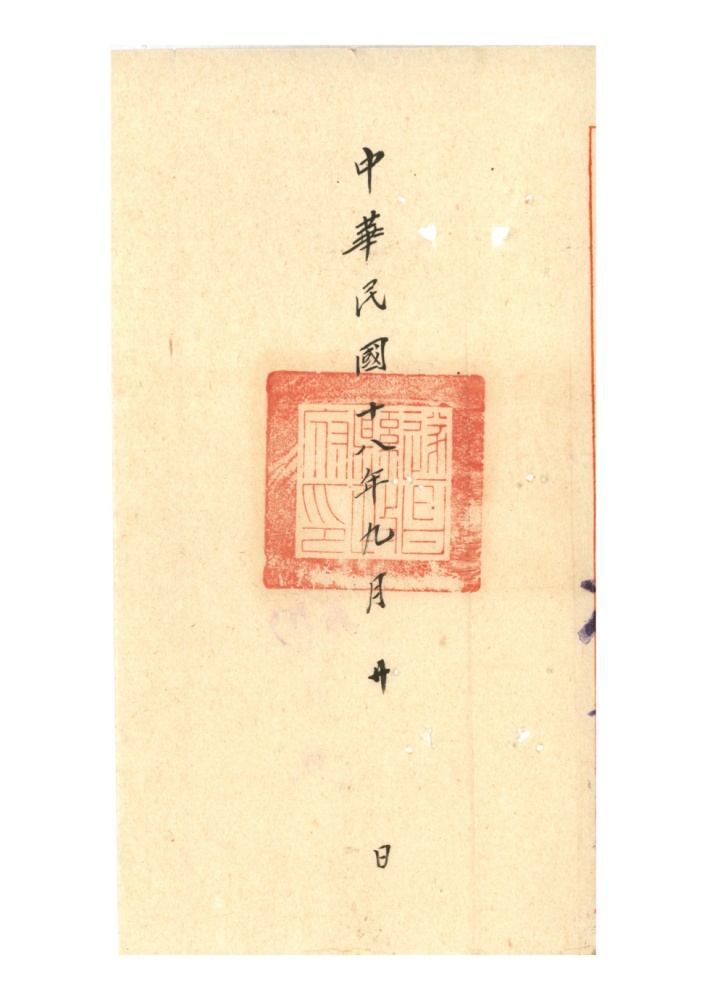 中華民國十八年九月廿日